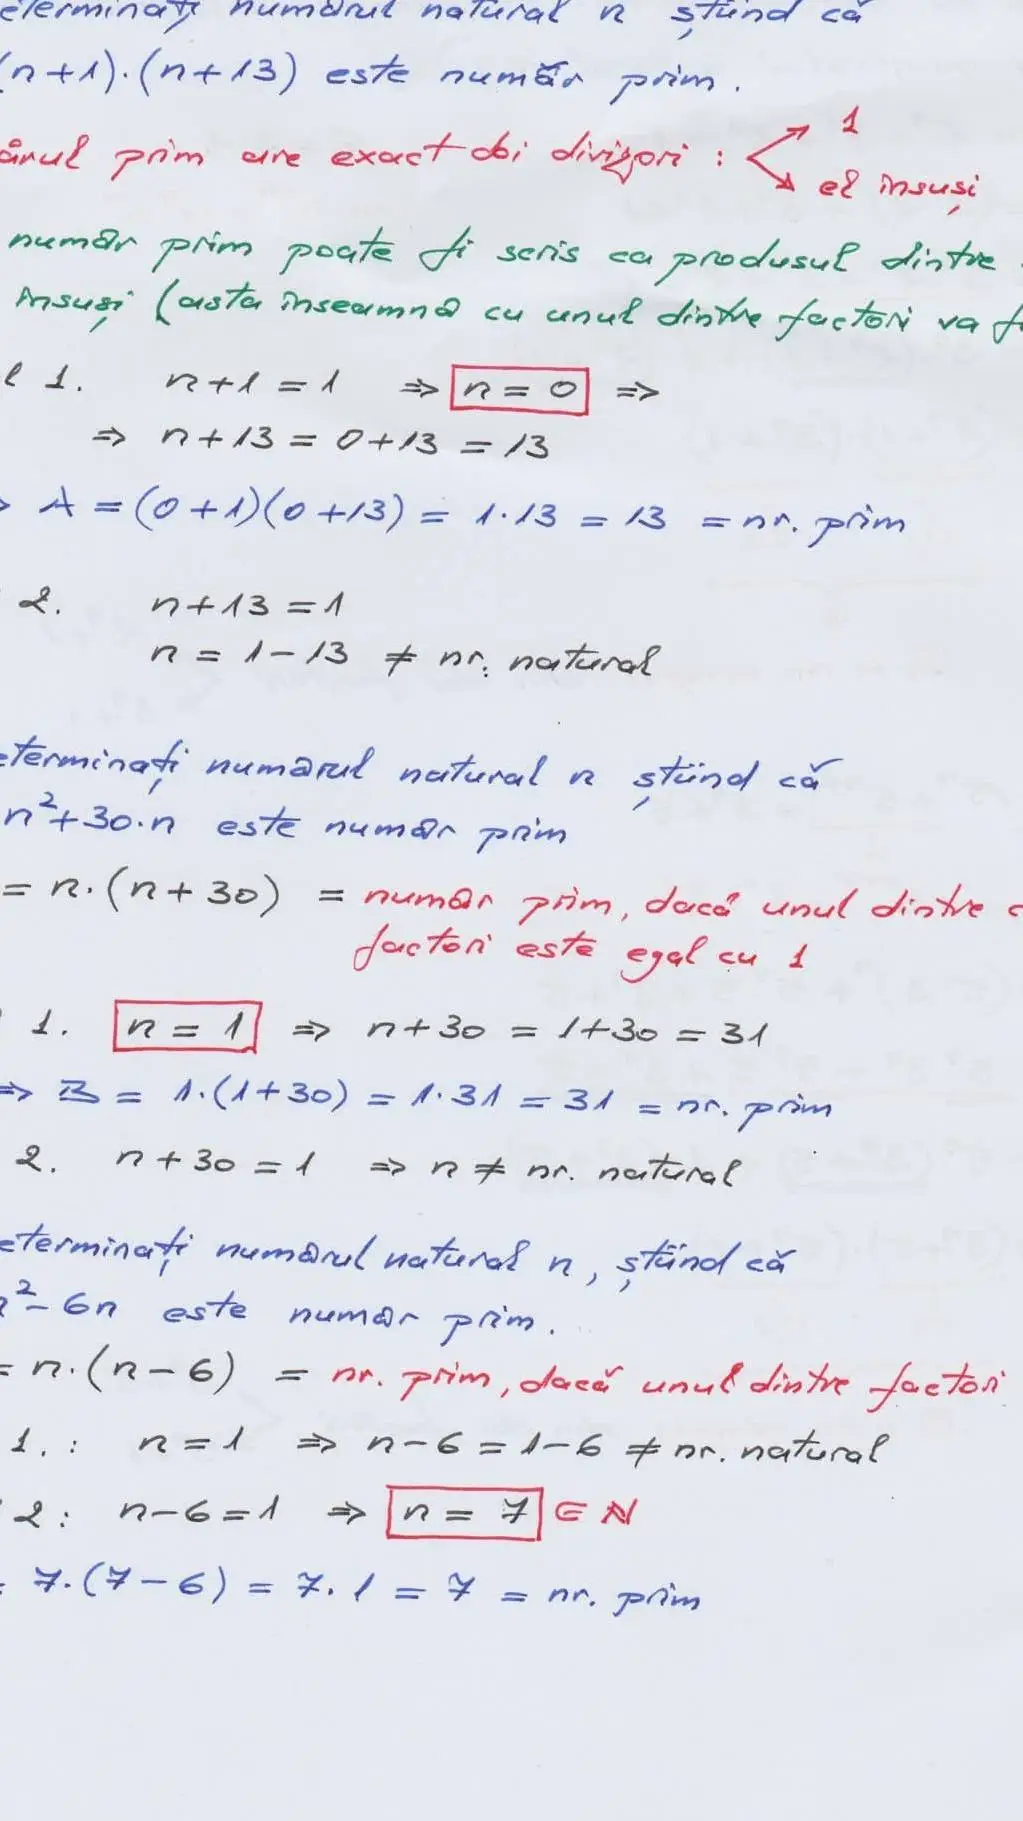 eterminați numărul natural n știind că
(n+1)·(n+13) este număr prim.
ărul prim are exact doi divizori : 1
el însuși
număr prim poate fi scris ca produsul dintre
însuși (asta înseamnă cu unul dintre factori va f
l 1. n+1 = 1 ⇒ n = 0 ⇒
⇒ n+13 = 0+13 = 13
A = (0+1)(0+13) = 1·13 = 13 = nr. prim
2. n+13 = 1
n = 1-13 ≠ nr. natural
eterminați numărul natural n știind că
n²+30·n este număr prim
= n·(n+30) = număr prim, dacă unul dintre
factori este egal cu 1
1. n = 1 ⇒ n+30 = 1+30 = 31
⇒ B = 1·(1+30) = 1·31 = 31 = nr. prim
2. n+30 = 1 ⇒ n ≠ nr. natural
eterminați numărul natural n, știind că
²-6n este număr prim.
= n·(n-6) = nr. prim, dacă unul dintre factori
1.: n=1 ⇒ n-6 = 1-6 ≠ nr. natural
2: n-6=1 ⇒ n = 7 ∈ N
= 7·(7-6) = 7·1 = 7 = nr. prim